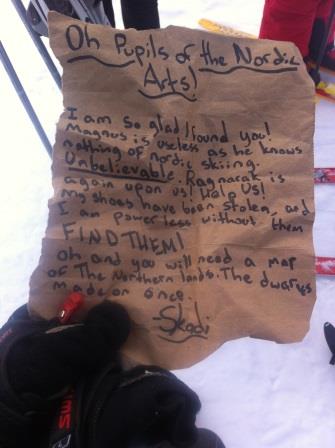 Oh Pupils of the Nordic
Arts!
I am so glad I found you!
Magnus is useless as he knows
nothing of nordic skiing.
Unbelievable Ragnarak is
again upon us! Help Us!
My shoes have been stolen, and
I am powerless without them
FIND THEM!
Oh and you will need a map
of the Northern lands. The dwarves
made on once.
Skadi